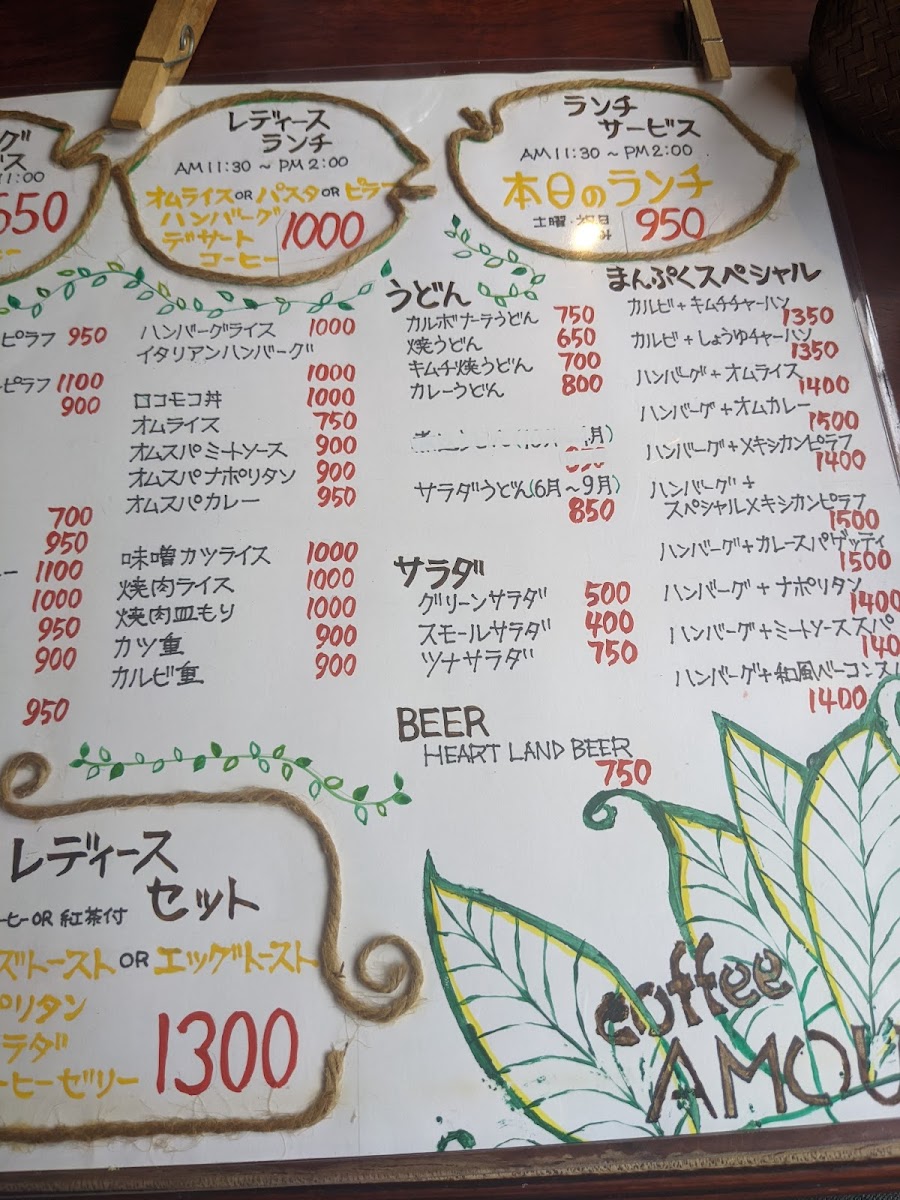 グ
ス
11:00
650
ー
レディース
ランチ
AM 11:30 ~ PM 2:00
オムライス OR パスタ OR ピラフ
ハンバーグ
デザート
コーヒー
1000
ランチ
サービス
AM 11:30 ~ PM 2:00
本日のランチ
土曜・祝日
み
950
ピラフ 950
ーピラフ 1100
900
700
950
ー 1100
1000
950
900
950
ハンバーグライス 1000
イタリアンハンバーグ
1000
ロコモコ丼 1000
オムライス 750
オムスパミートソース 900
オムスパナポリタン 900
オムスパカレー 950
味噌カツライス 1000
焼肉ライス 1000
焼肉皿もり 1000
カツ重 900
カルビ重 900
うどん
カルボナーラうどん 750
焼うどん 650
キムチ焼うどん 700
カレーうどん 800
月)
サラダうどん(6月～9月)
850
サラダ
グリーンサラダ 500
スモールサラダ 400
ツナサラダ 750
BEER
HEART LAND BEER
750
まんぷくスペシャル
カルビ+キムチチャーハン
1350
カルビ+しょうゆチャーハン
1350
ハンバーグ+オムライス
1400
ハンバーグ+オムカレー
1500
ハンバーグ+メキシカンピラフ
1400
ハンバーグ+
スペシャルメキシカンピラフ
1500
ハンバーグ+カレースパゲッティ
1500
ハンバーグ+ナポリタン
1400
ハンバーグ+ミートソーススパ
140
ハンバーグ+和風ベーコンス
1400
レディース
セット
ーヒーOR 紅茶付
ズトースト OR エッグトースト
ポリタン
ラダ
ーヒーゼリー
1300
coffee
AMOU